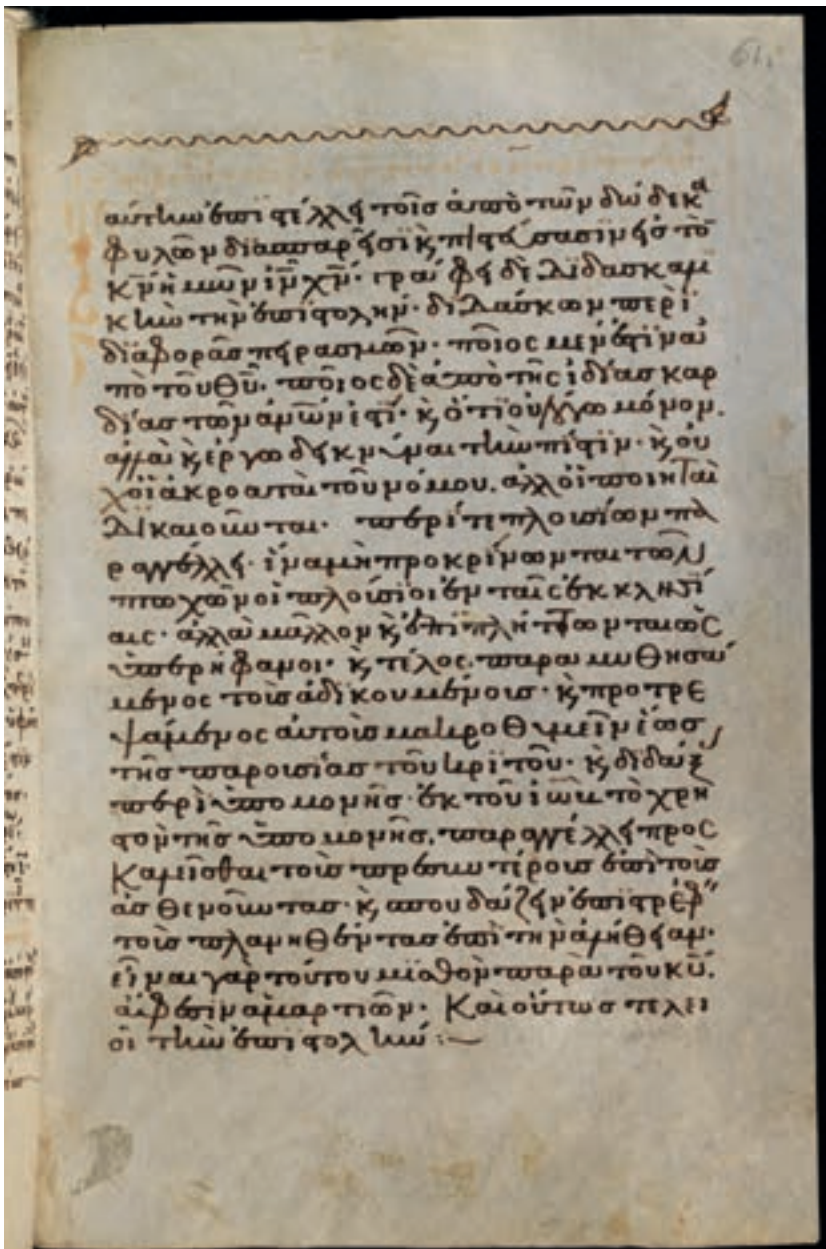 61.
αὐτὴν ἐπιστέλλει τοῖς ἀπὸ τῶν δώδεκα
φυλῶν διασπαρεῖσι κ, πιστεύσασιν εἰς τὸν
κν ἡμῶν ιν χν· γράφει δὲ διδασκαλι
κὴν τὴν ἐπιστολὴν· διδάσκων περὶ
διαφορᾶς πειρασμῶν· ποῖος μεν ἐστὶν ἀ
πὸ τοῦ θυ· ποῖος δὲ ἀπὸ τῆς ἰδίας καρ
δίας τῶν ἀνων ἐστί· κ, ὅτι οὐ λόγω μόνον.
ἀλλὰ κ, ἔργω δεικνύναι τὴν πίστιν· κ, οὐ
χοἱ ἀκροαταὶ τοῦ νόμου. ἀλλ οἱ ποιηταὶ
δικαιοῦνται· περί τε πλουσίων πα
ραγγέλλει· ἵνα μὴ προκρίνωνται τῶν
πτωχῶν οἱ πλούσιοι ἐν ταῖς ἐκκλησί
αις· ἀλλὰ μᾶλλον κ, ἐπιπλήττωνται ὡς
ὑπερήφανοι· κ, τέλος. παραμυθησά
μενος τοῖς ἀδικουμένοις· κ, προτρε
ψάμενος αὐτοῖς μακροθυμεῖν ἕως
τῆς παρουσίας τοῦ κριτοῦ· κ, διδάξ
περὶ ὑπομονῆς· ἐκ τοῦ ἰὼβ τὸ χρή
στον τῆς ὑπομονῆς. παραγγέλλει προς
Καλεῖσθαι τοῖς πρεσβυτέροις ἐπὶ τοῖς
ἀσθενοῦντας· κ, σπουδάζειν ἐπιστρέφ
τοῖς πλανηθέντας ἐπὶ τὴν ἀλήθειαν·
εἶναι γαρ τούτου μισθὸν παρὰ τοῦ κυ.
ἄφεσιν ἁμαρτιῶν· Καὶ οὕτως τελει
οῖ τὴν ἐπιστολήν :~